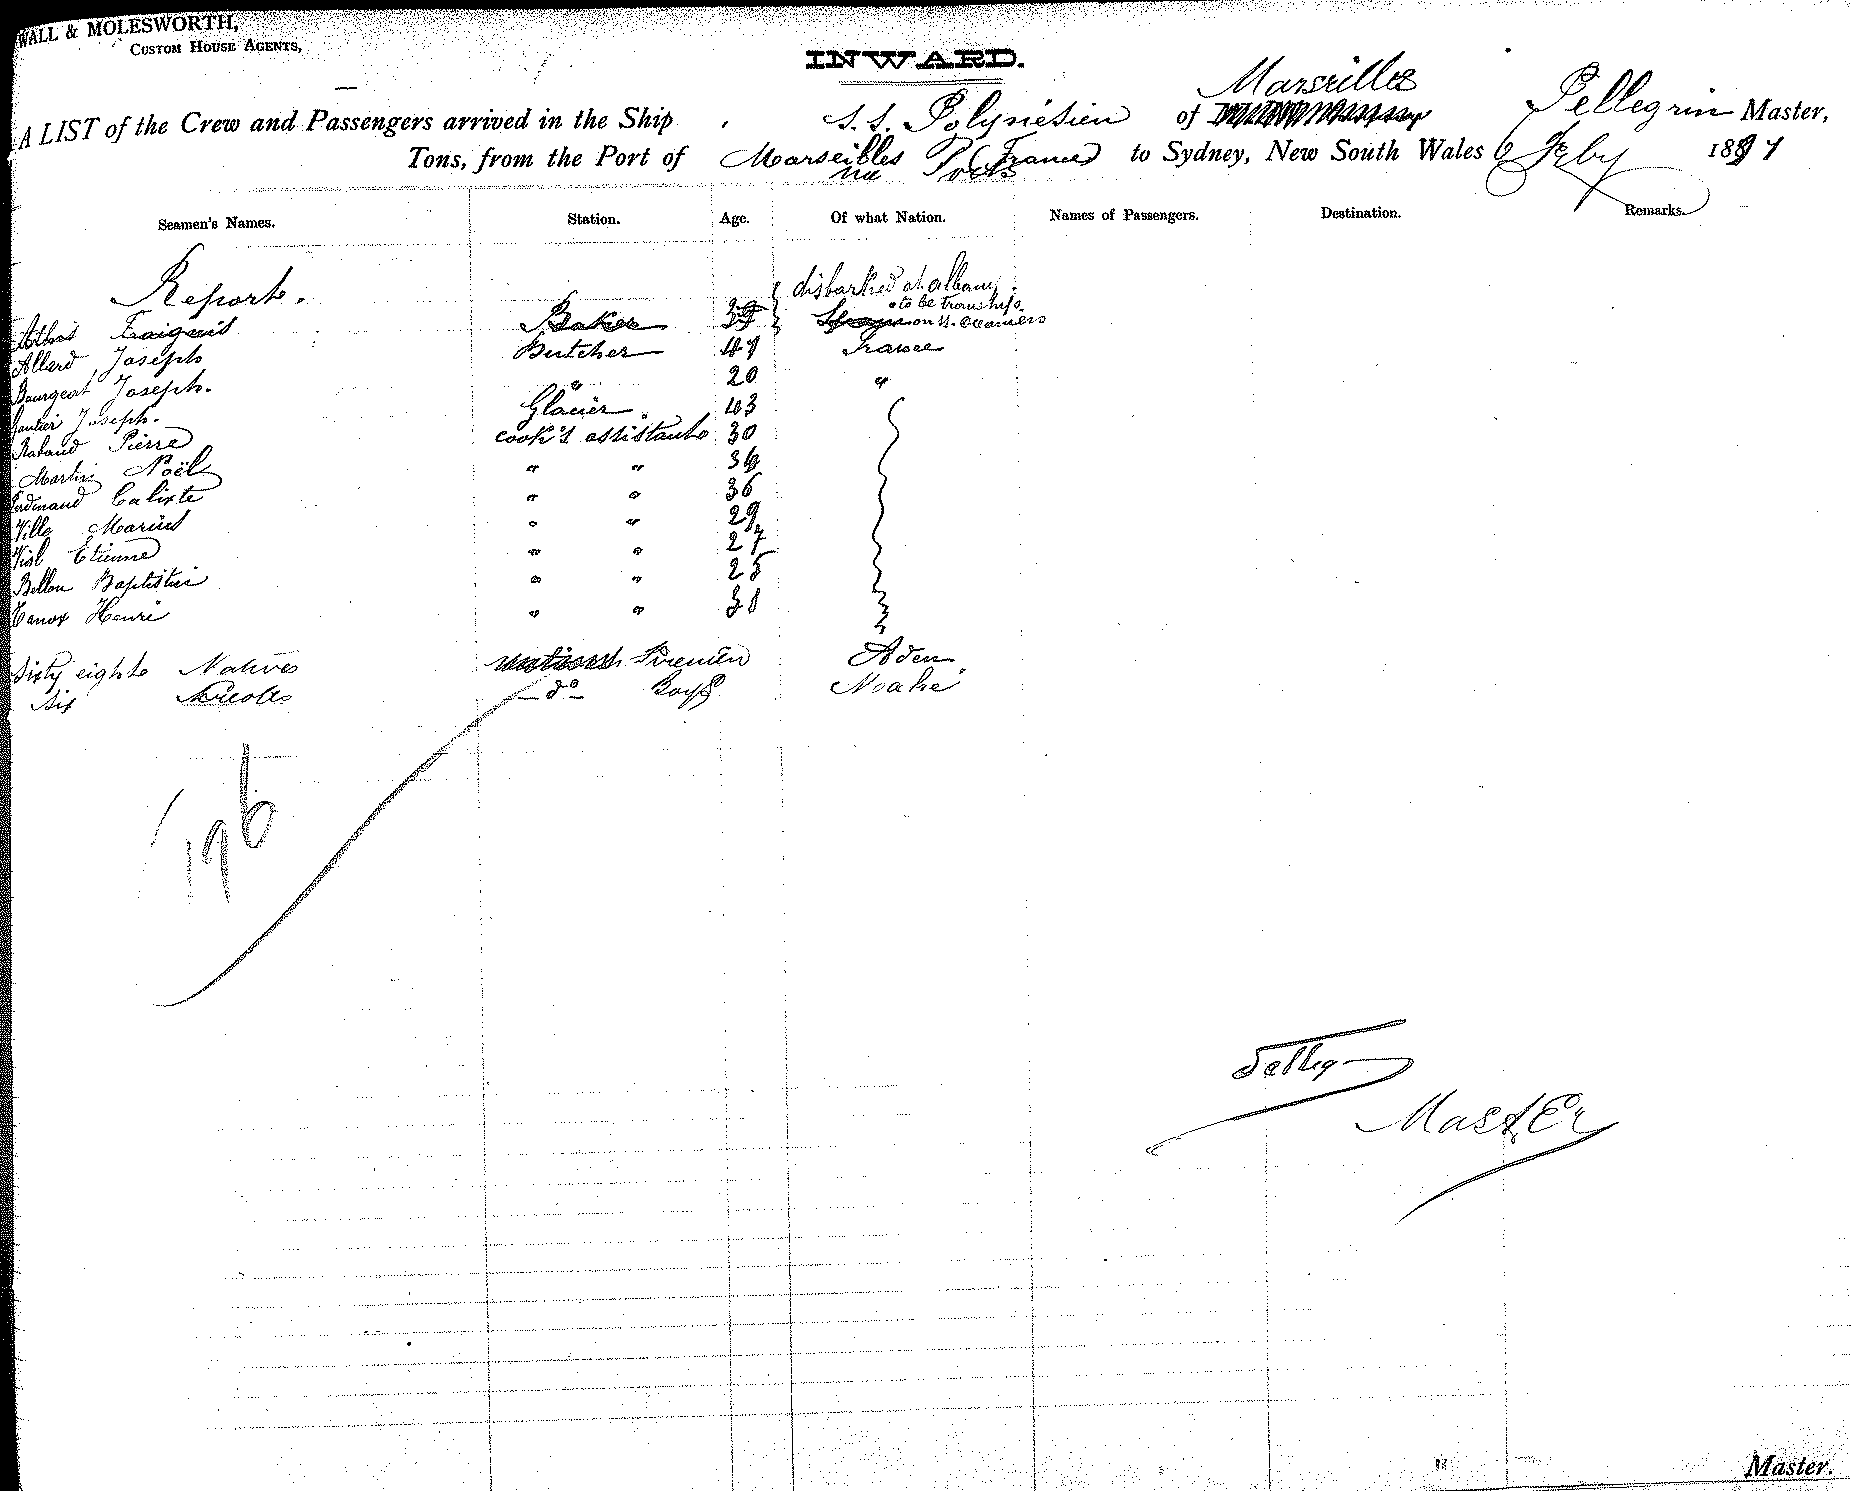 WALL & MOLESWORTH,
CUSTOM HOUSE AGENTS,
INWARD.
Marseilles
A LIST of the Crew and Passengers arrived in the Ship s.s. Polynésien of Pellegrin Master,
Tons, from the Port of Marseilles (France) to Sydney, New South Wales 6 Feby 1891
via Ports
Seamen's Names. Station. Age. Of what Nation. Names of Passengers. Destination. Remarks.
Report.
disbarked at albany
to be tranship.
Baker on s. oceaniens
Allard Joseph Butcher 41 France
Bourgeat Joseph. " 20 "
Gautier Joseph. Glacier 43
Rabaud Pierre cook's assistants 30
Martin Noël " "
Ferdinand Calixte " " 36
Villa Marius " " 29
Viel Etienne " " 27
Bellon Baptistin " " 25
Canox Henri " " 31
Sixty eight Natives Firemen Aden
Six do Boys Mahé
196
Pelleg
Master
Master.